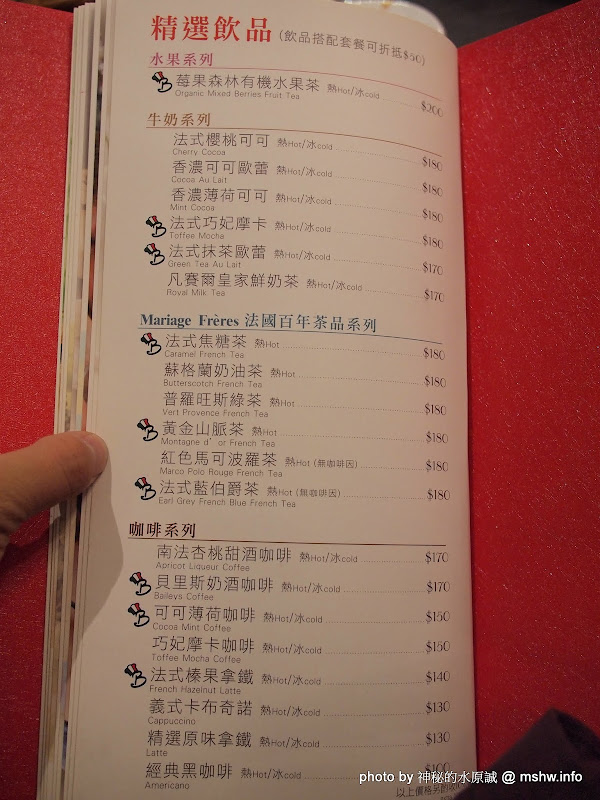 精選飲品 (飲品搭配套餐可折抵$50)
水果系列
莓果森林有機水果茶 熱Hot/冰cold $200
Organic Mixed Berries Fruit Tea
牛奶系列
法式櫻桃可可 熱Hot/冰cold $180
Cherry Cocoa
香濃可可歐蕾 熱Hot/冰cold $180
Cocoa Au Lait
香濃薄荷可可 熱Hot/冰cold $180
Mint Cocoa
法式巧妃摩卡 熱Hot/冰cold $180
Toffee Mocha
法式抹茶歐蕾 熱Hot/冰cold $170
Green Tea Au Lait
凡賽爾皇家鮮奶茶 熱Hot/冰cold $170
Royal Milk Tea
Mariage Frères 法國百年茶品系列
法式焦糖茶 熱Hot $180
Caramel French Tea
蘇格蘭奶油茶 熱Hot $180
Butterscotch French Tea
普羅旺斯綠茶 熱Hot $180
Vert Provence French Tea
黃金山脈茶 熱Hot $180
Montagne d' or French Tea
紅色馬可波羅茶 熱Hot (無咖啡因) $180
Marco Polo Rouge French Tea
法式藍伯爵茶 熱Hot (無咖啡因) $180
Earl Grey French Blue French Tea
咖啡系列
南法杏桃甜酒咖啡 熱Hot/冰cold $170
Apricot Liqueur Coffee
貝里斯奶酒咖啡 熱Hot/冰cold $170
Baileys Coffee
可可薄荷咖啡 熱Hot/冰cold $150
Cocoa Mint Coffee
巧妃摩卡咖啡 熱Hot/冰cold $150
Toffee Mocha Coffee
法式榛果拿鐵 熱Hot/冰cold $140
French Hazelnut Latte
義式卡布奇諾 熱Hot/冰cold $130
Cappuccino
精選原味拿鐵 熱Hot/冰cold $130
Latte
經典黑咖啡 熱Hot/冰cold $100
Americano
以上價格另酌收
photo by 神秘的水原誠 @ mshw.info